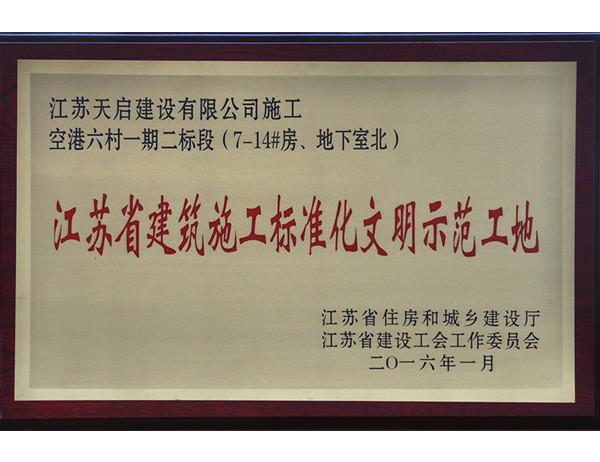 江苏天启建设有限公司施工
空港六村一期二标段（7-14#房、地下室北）
江苏省建筑施工标准化文明示范工地
江苏省住房和城乡建设厅
江苏省建设工会工作委员会
二〇一六年一月